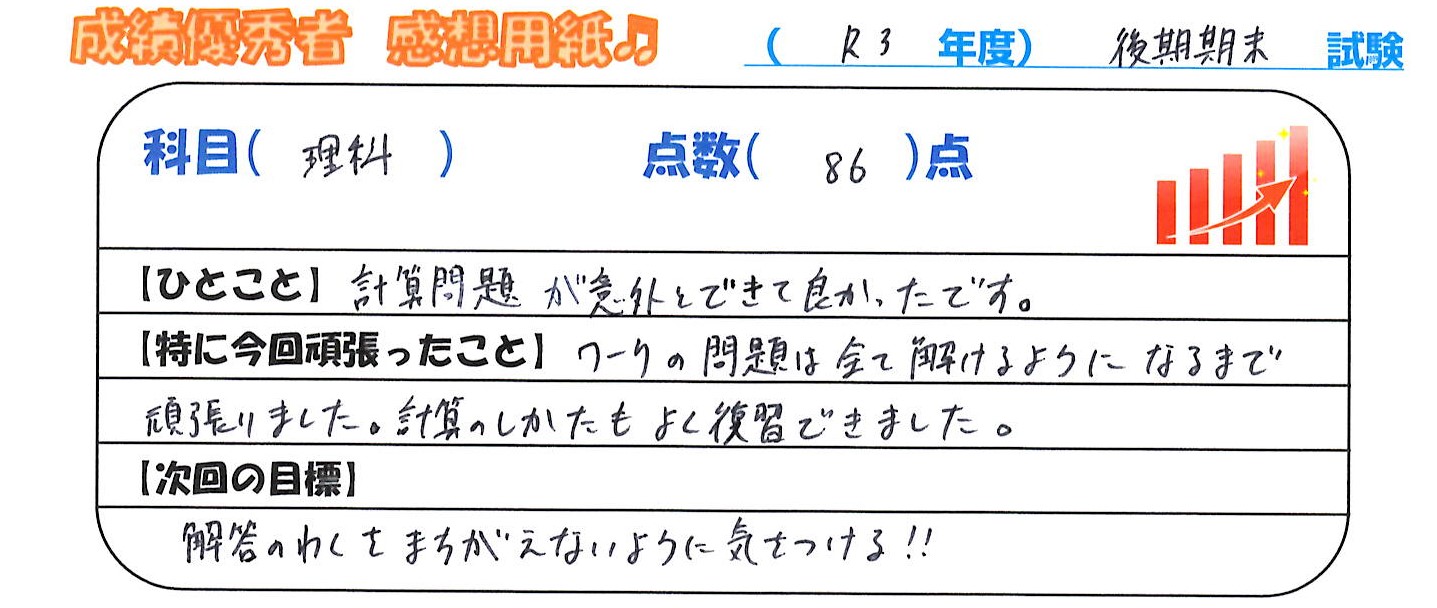 成績優秀者 感想用紙♫ ( R3 年度) 後期期末 試験
科目( 理科 ) 点数( 86 )点
【ひとこと】計算問題が意外とできて良かったです。
【特に今回頑張ったこと】ワークの問題は全て解けるようになるまで
頑張りました。計算のしかたもよく復習できました。
【次回の目標】
解答のわくをまちがえないように気をつける!!